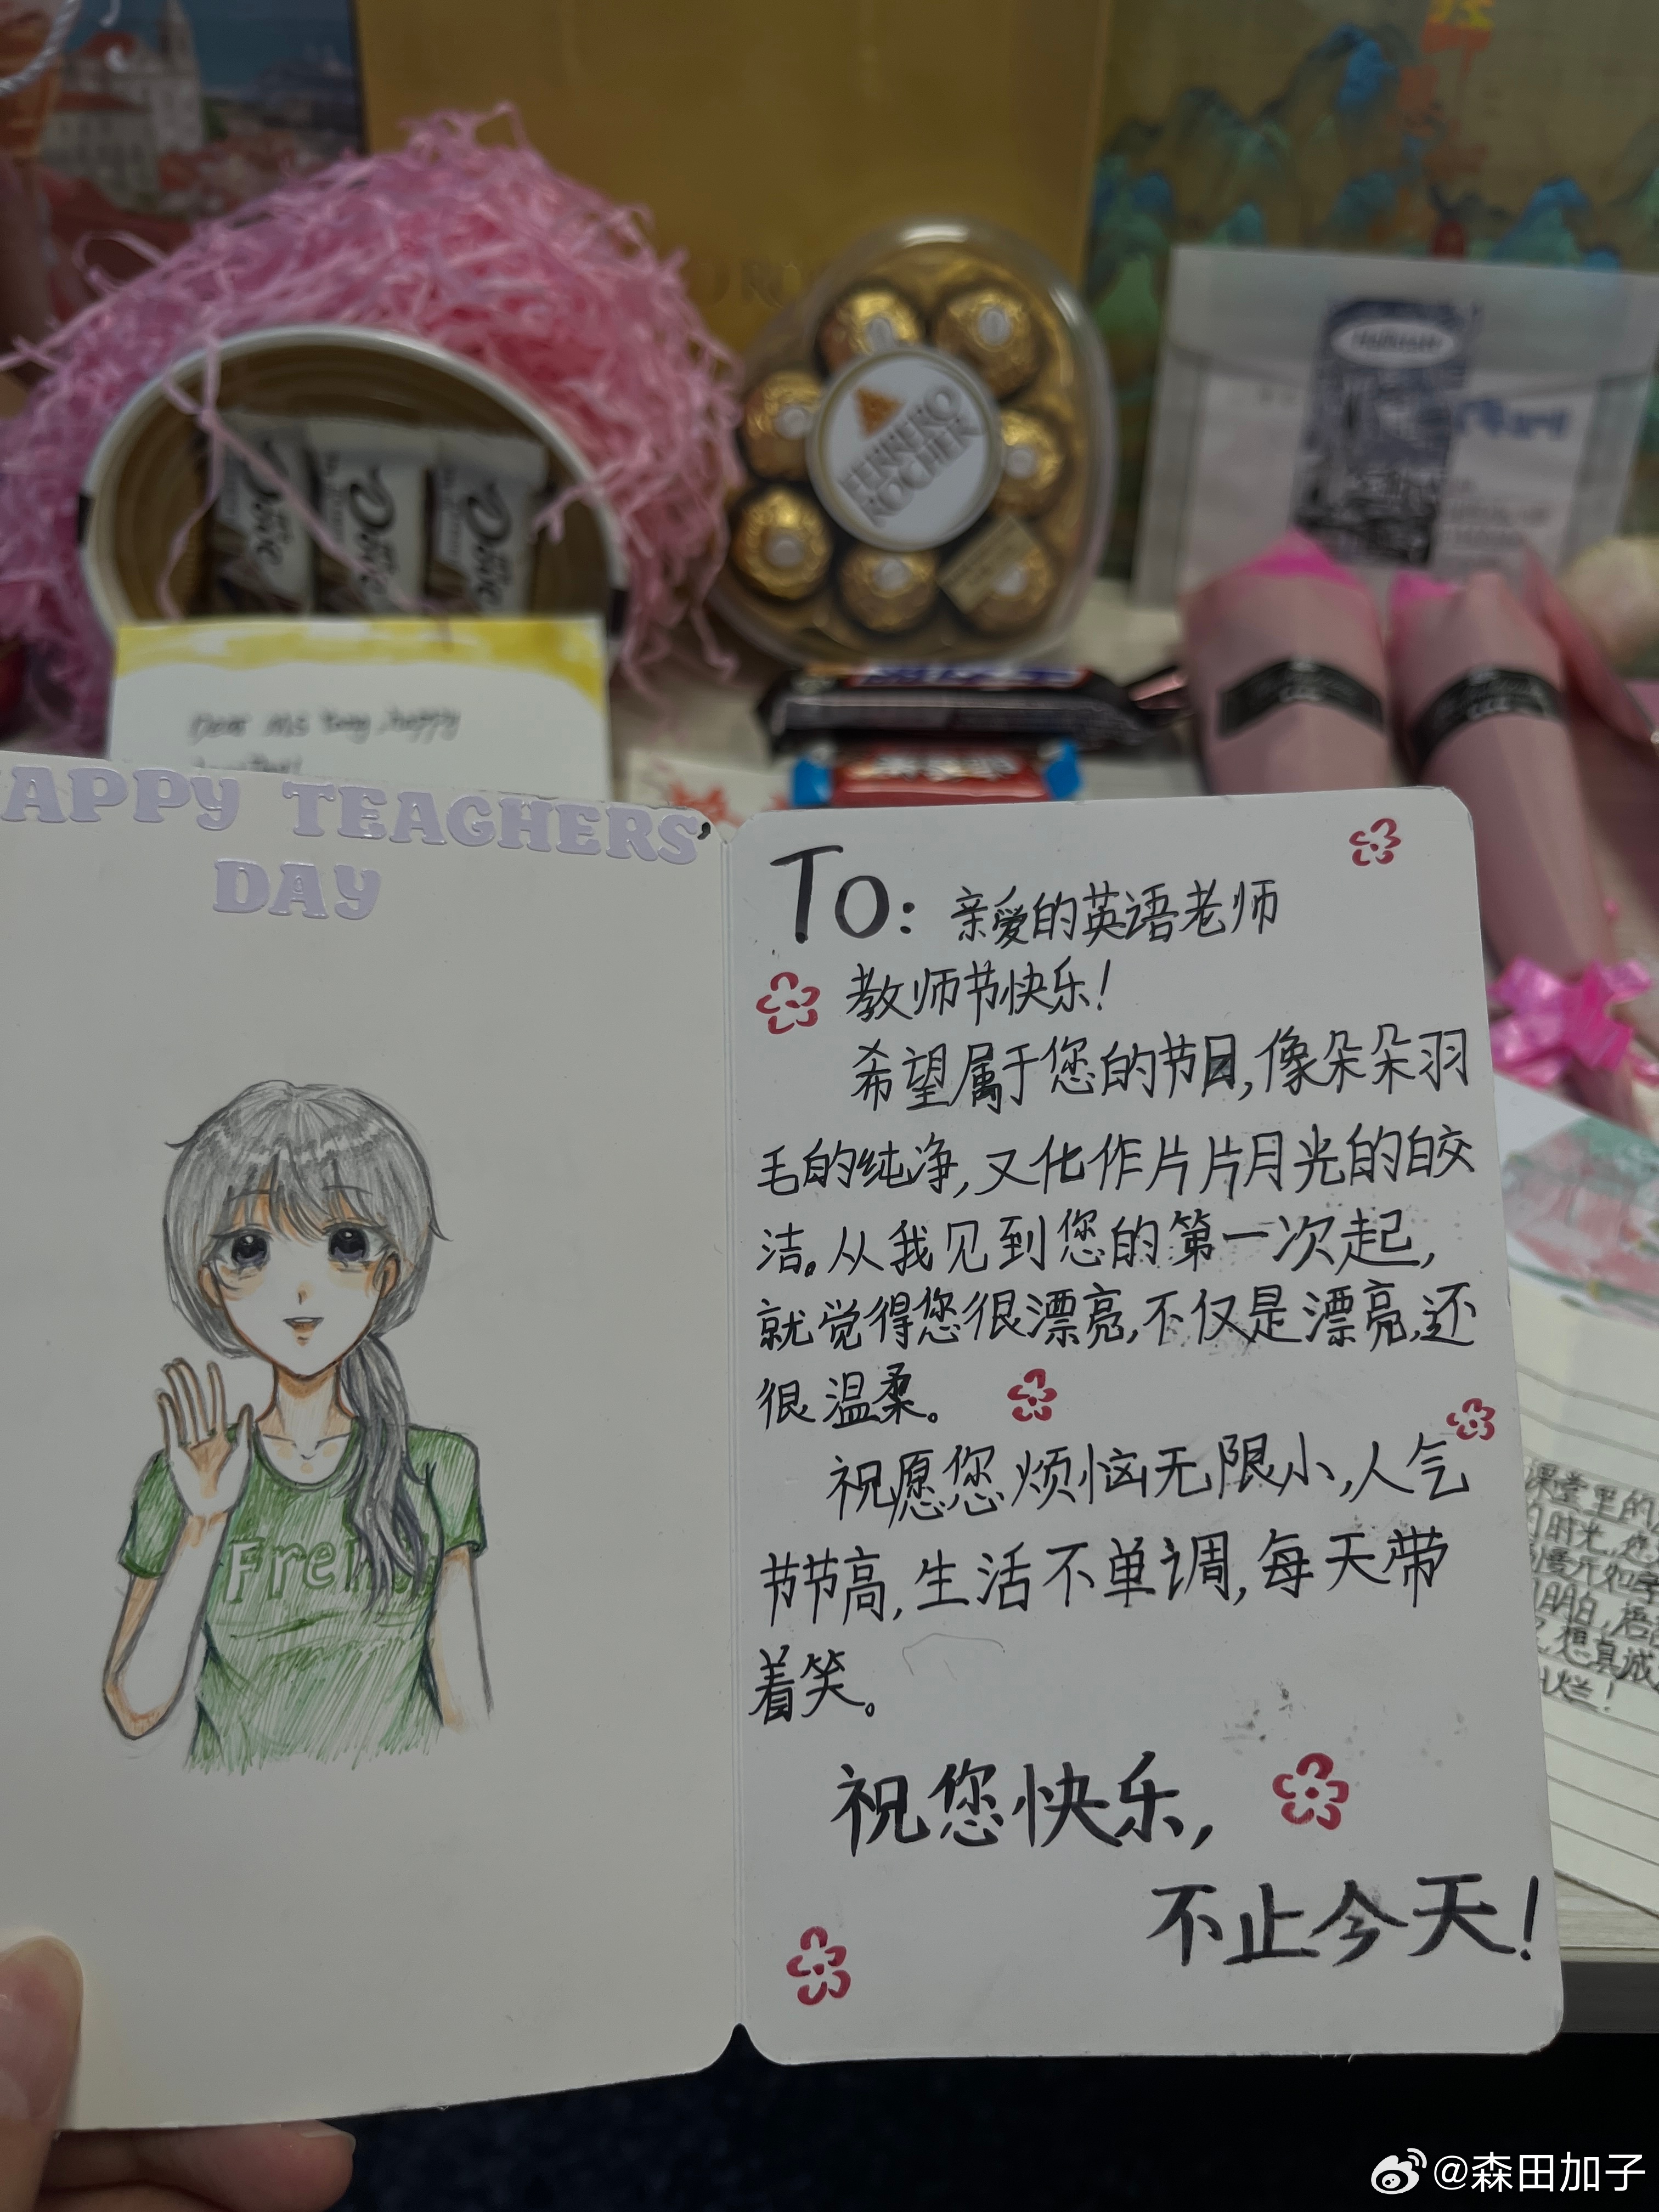 FERRERO
ROCHER
Dove
Dove
Dove
Dear Ms Tang, happy
HAPPY TEACHERS'
DAY
TO: 亲爱的英语老师
教师节快乐!
希望属于您的节日,像朵朵羽
毛的纯净,又化作片片月光的皎
洁。从我见到您的第一次起,
就觉得您很漂亮,不仅是漂亮,还
很温柔。
祝愿您烦恼无限小,人气
节节高,生活不单调,每天带
着笑。
祝您快乐,
不止今天!
课堂里的
时光
想真诚
烂!
@森田加子